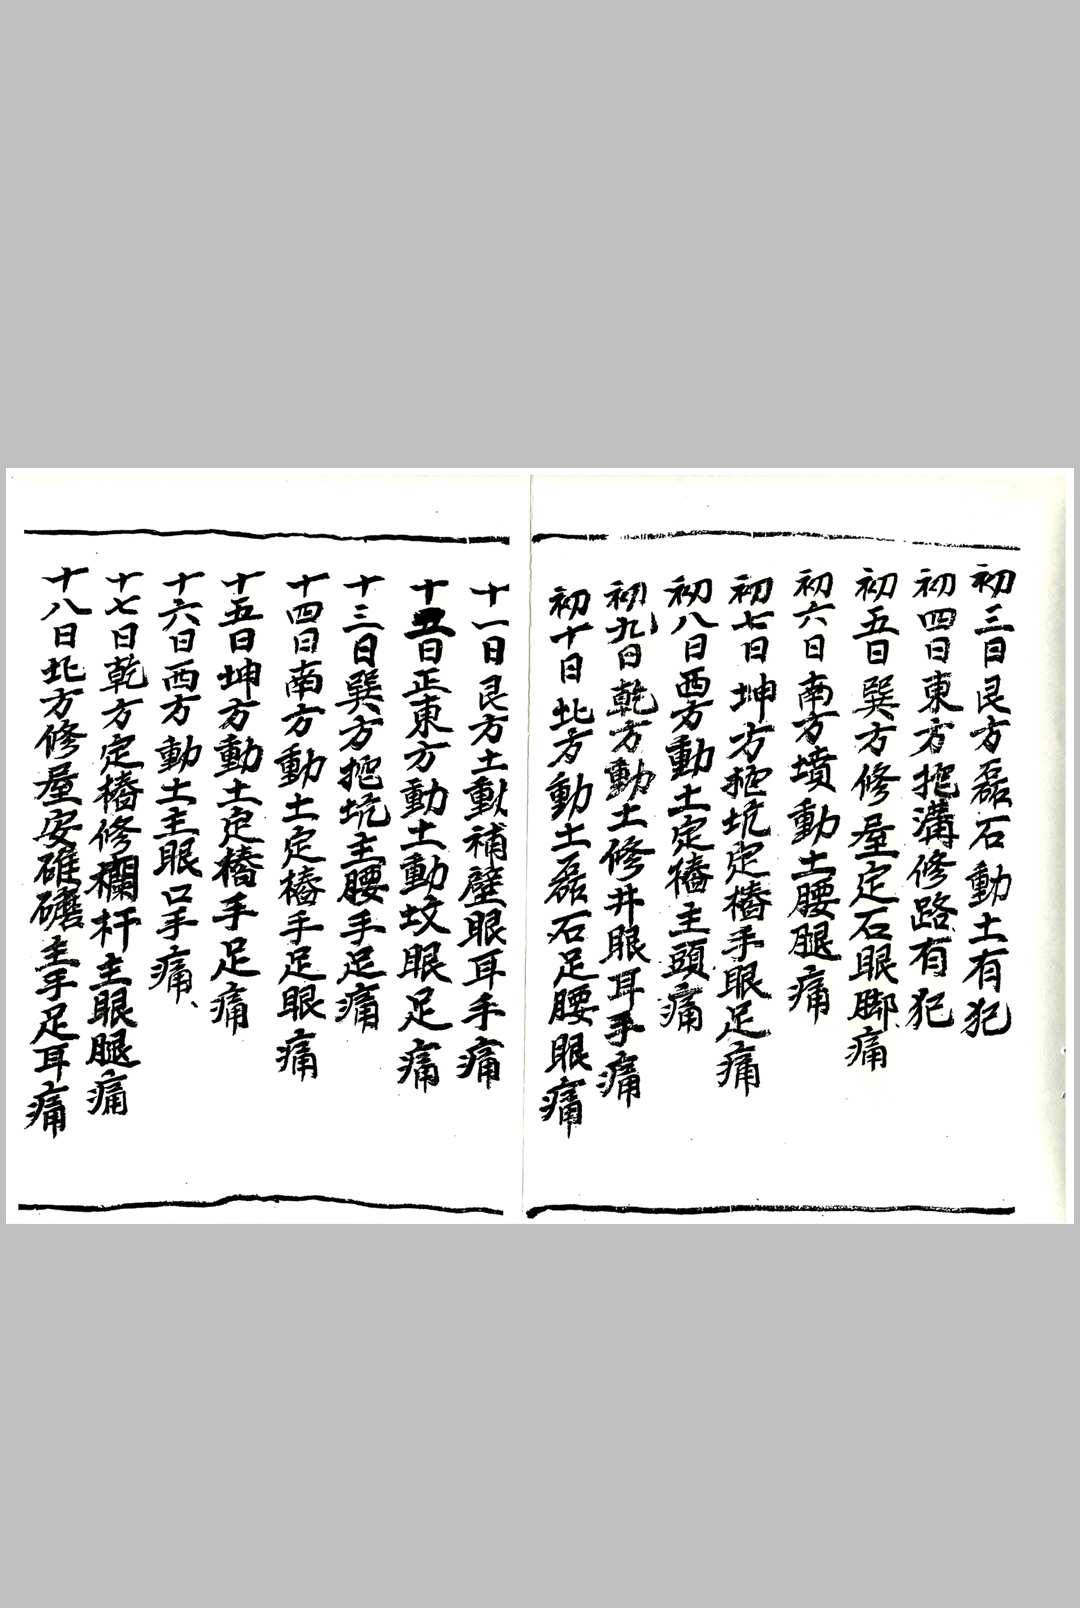 初三日艮方磊石動土有犯
初四日東方挖溝修路有犯
初五日巽方修屋定石眼脚痛
初六日南方墳動土腰腿痛
初七日坤方挖坑定樁手眼足痛
初八日酉方動土定樁主頭痛
初九日乾方動土修井眼耳手痛
初十日北方動土磊石足腰眼痛
十一日艮方土動補壁眼耳手痛
十五日正東方動土動坟眼足痛
十三日巽方挖坑主腰手足痛
十四日南方動土定樁手足眼痛
十五日坤方動土定樁手足痛
十六日西方動土主眼口手痛、
十七日乾方定樁修欄杆主眼腿痛
十八日北方修屋安碓磨主手足耳痛